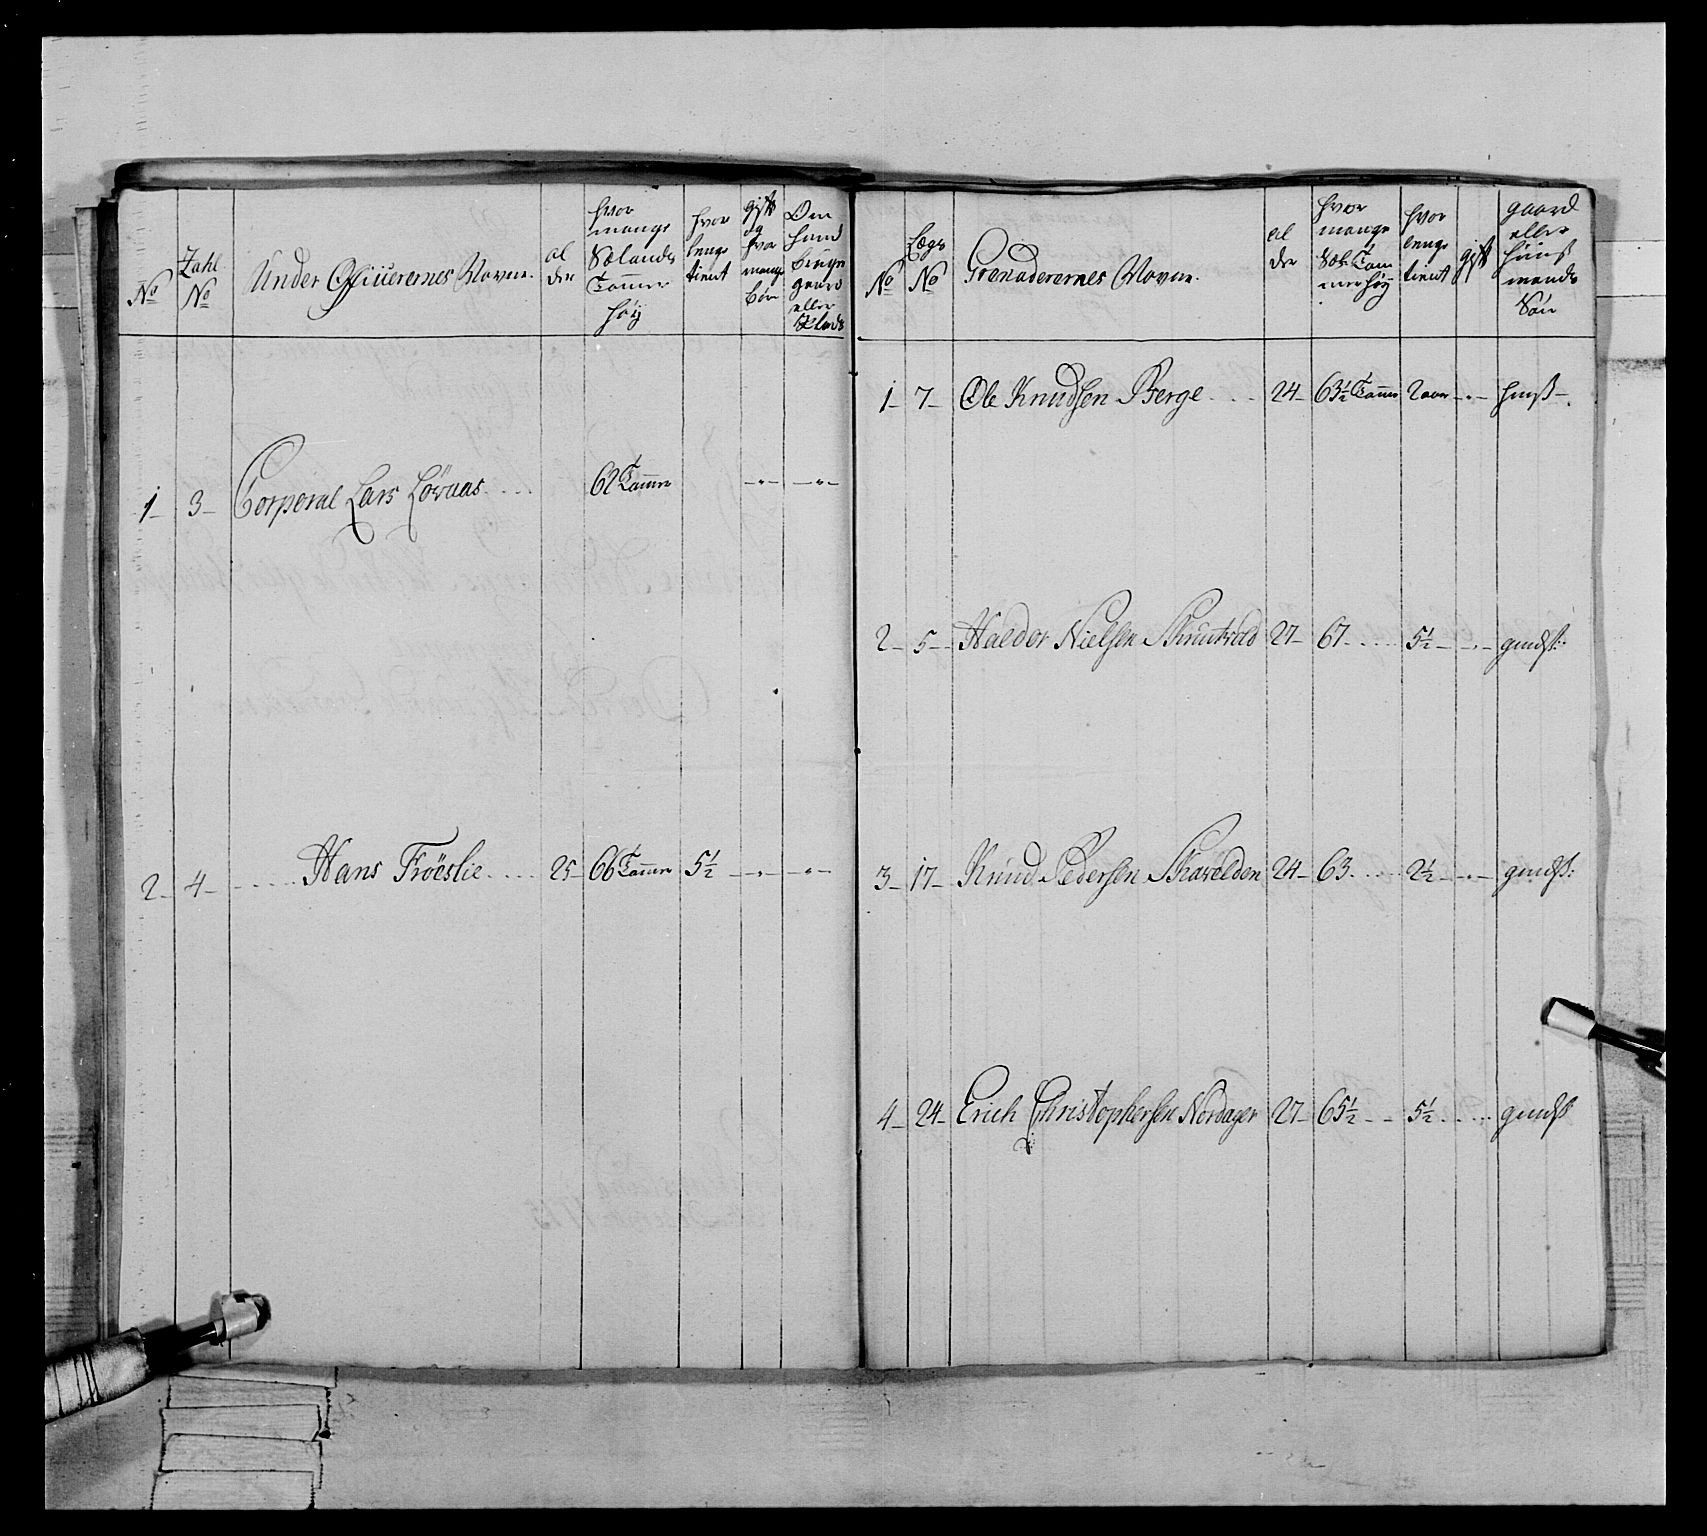 No
Zahl No
Under Officerernes Navne.
al der
hvor mange Sælands Tommer høy
hvor lenge tient
gift og hvor mange börn
Om hand bruger gaard eller
1 - 3 - Corporal Lars Lövaas.... 62 Tomme -"- -"-
2 - 4 - ..... Hans Fröeslie.... 25 - 66 Tomme 5½ -"- -"-
No
Lægs No
Grenaderernes Navne.
al der
hvor mange Sæl: Tom mer høy
hvor lenge tient
gift
gaard eller huus mands Sön
1 - 7 - Ole Knudsen Berge.... 24 - 63½ Tomme 2 aar -"- huuß -
2 - 5 - Haldor Nielsen 27 - 67.... 5½ -"- gmdß:
3 - 17 - Knud Pedersen 24 - 63.... 2½ -"- gmdß:
4 - 24 - Erich Christophersen Nordager 27 - 65½ -- 5½.... gmdß